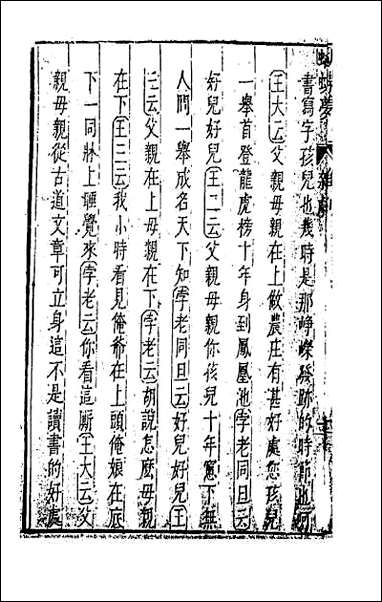 蝴蝶夢 雜劇
書寫字孩兒也幾時是那崢嶸發跡的時節也呵
王大云父親母親在上做農庄有甚好處您孩兒
一舉首登龍虎榜十年身到鳳凰池孛老同旦云
好兒好兒王二云父親母親你孩兒十年窻下無
人問一舉成名天下知孛老同旦云好兒好兒王
三云父親在上母親在下孛老云胡說怎麼母親
在下王三云我小時看見俺爺在上頭俺娘在底
下一同牀上睡覺來孛老云你看這厮王大云父
親母親從古道文章可立身這不是讀書的好處